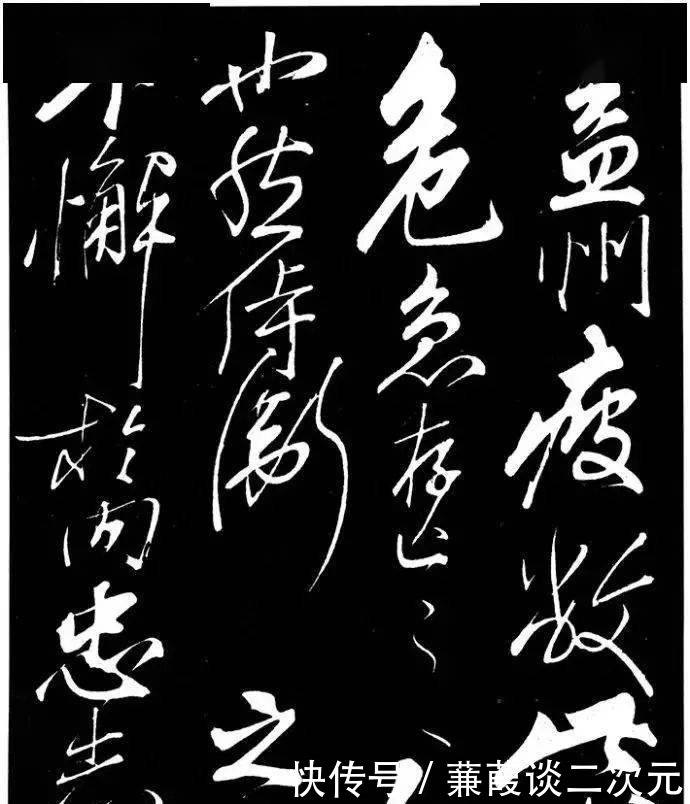 益州疲敝此
危急存亡之
也然侍衛之
不懈於内忠志
快传号 / 蒹葭谈二次元